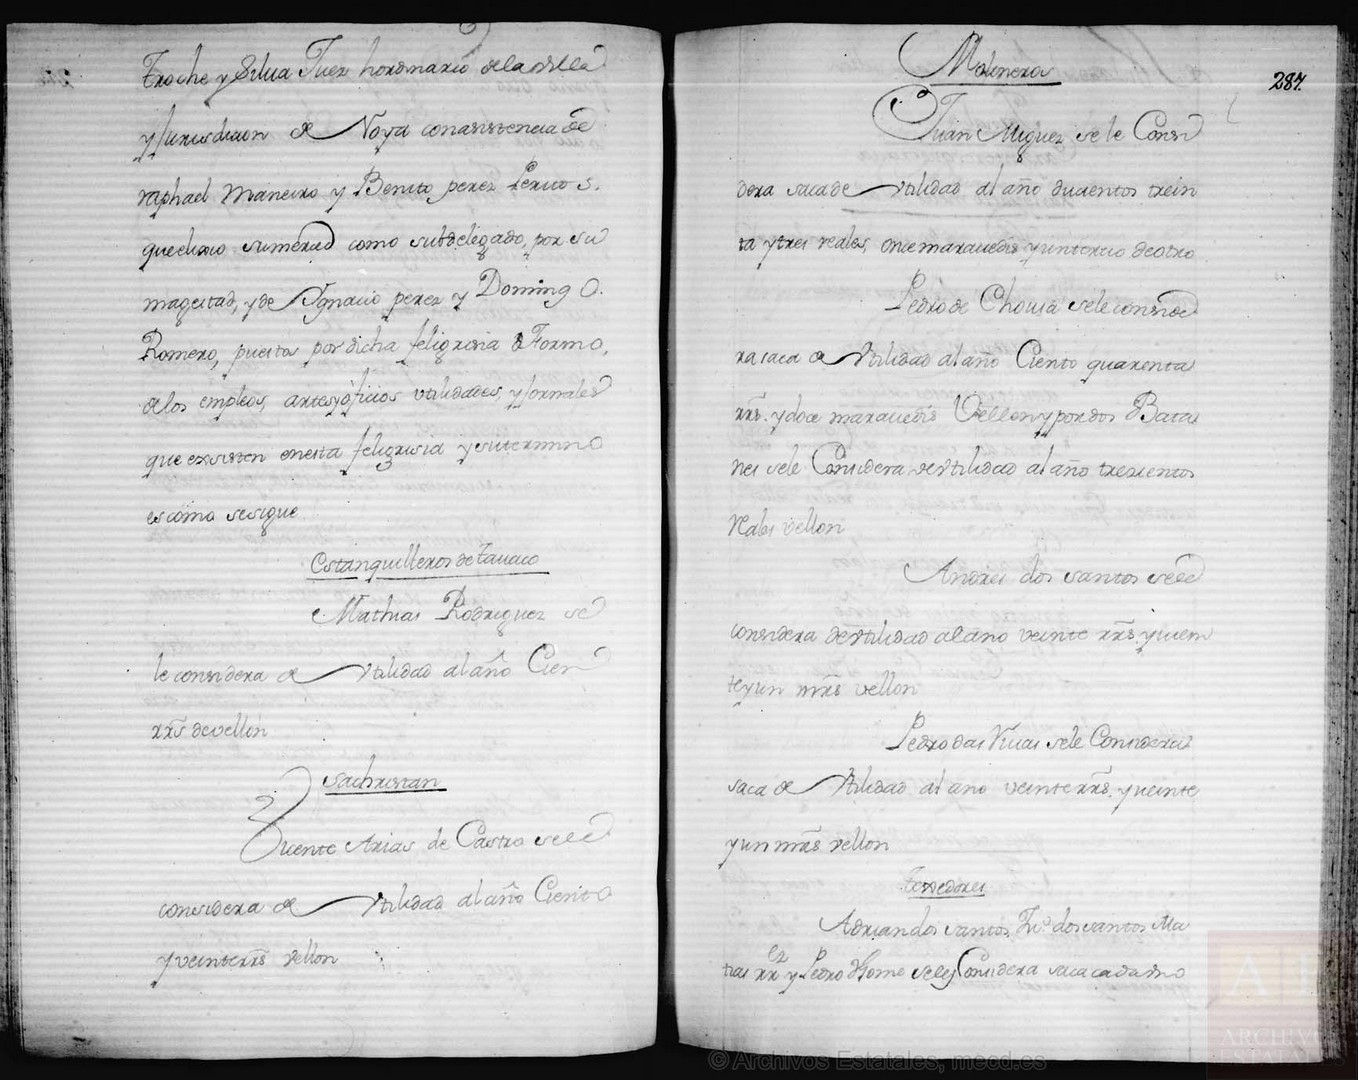 Troche y Silva Juez hordinario de la villa
y Jurisdicion de Noya con asistencia de
raphael Maneiro y Benito perez Peritos.
que elixio su merced como subdelegado, por su
magestad, y de Ygnacio perez y Domingo
Romero, puestos por dicha feligrisia de Formo,
de los empleos, artes, y oficios vtilidades, y Jornales
que existen en esta feligrisia y su termino
es como se sigue
Estanquilleros de tavaco
Mathias Rodriguez se
le considera de Vtilidad al año Cien
rrs de vellon
Sachristan
Vicente Arias de Castro se le
considera de Vtilidad al año Ciento
y veinte rrs vellon
Molineros
287.
Juan Miguez se le Consi
dera saca de vtilidad al año ducientos trein
ta y tres reales, once maravedis y un tercio de otro
Pedro de Chousa se le conside
ra saca de Vtilidad al año Ciento quarenta
rrs. y doce maravedis Vellon y por dos Bata
nes se le Considera de vtilidad al año trescientos
reales vellon
Andres dos santos se le
considera de Vtilidad al año veinte rrs. y vein
te y un mrs vellon
Pedro das Vivas se le Considera
saca de Vtilidad al año veinte rrs. y veinte
y un mrs vellon
Texedores
Adrian dos santos, Fco. dos santos Ma
tias rrez y Pedro de Gome se les Considera saca cada uno
© Archivos Estatales, mecd.es
ARCHIVOS
ESTATALES